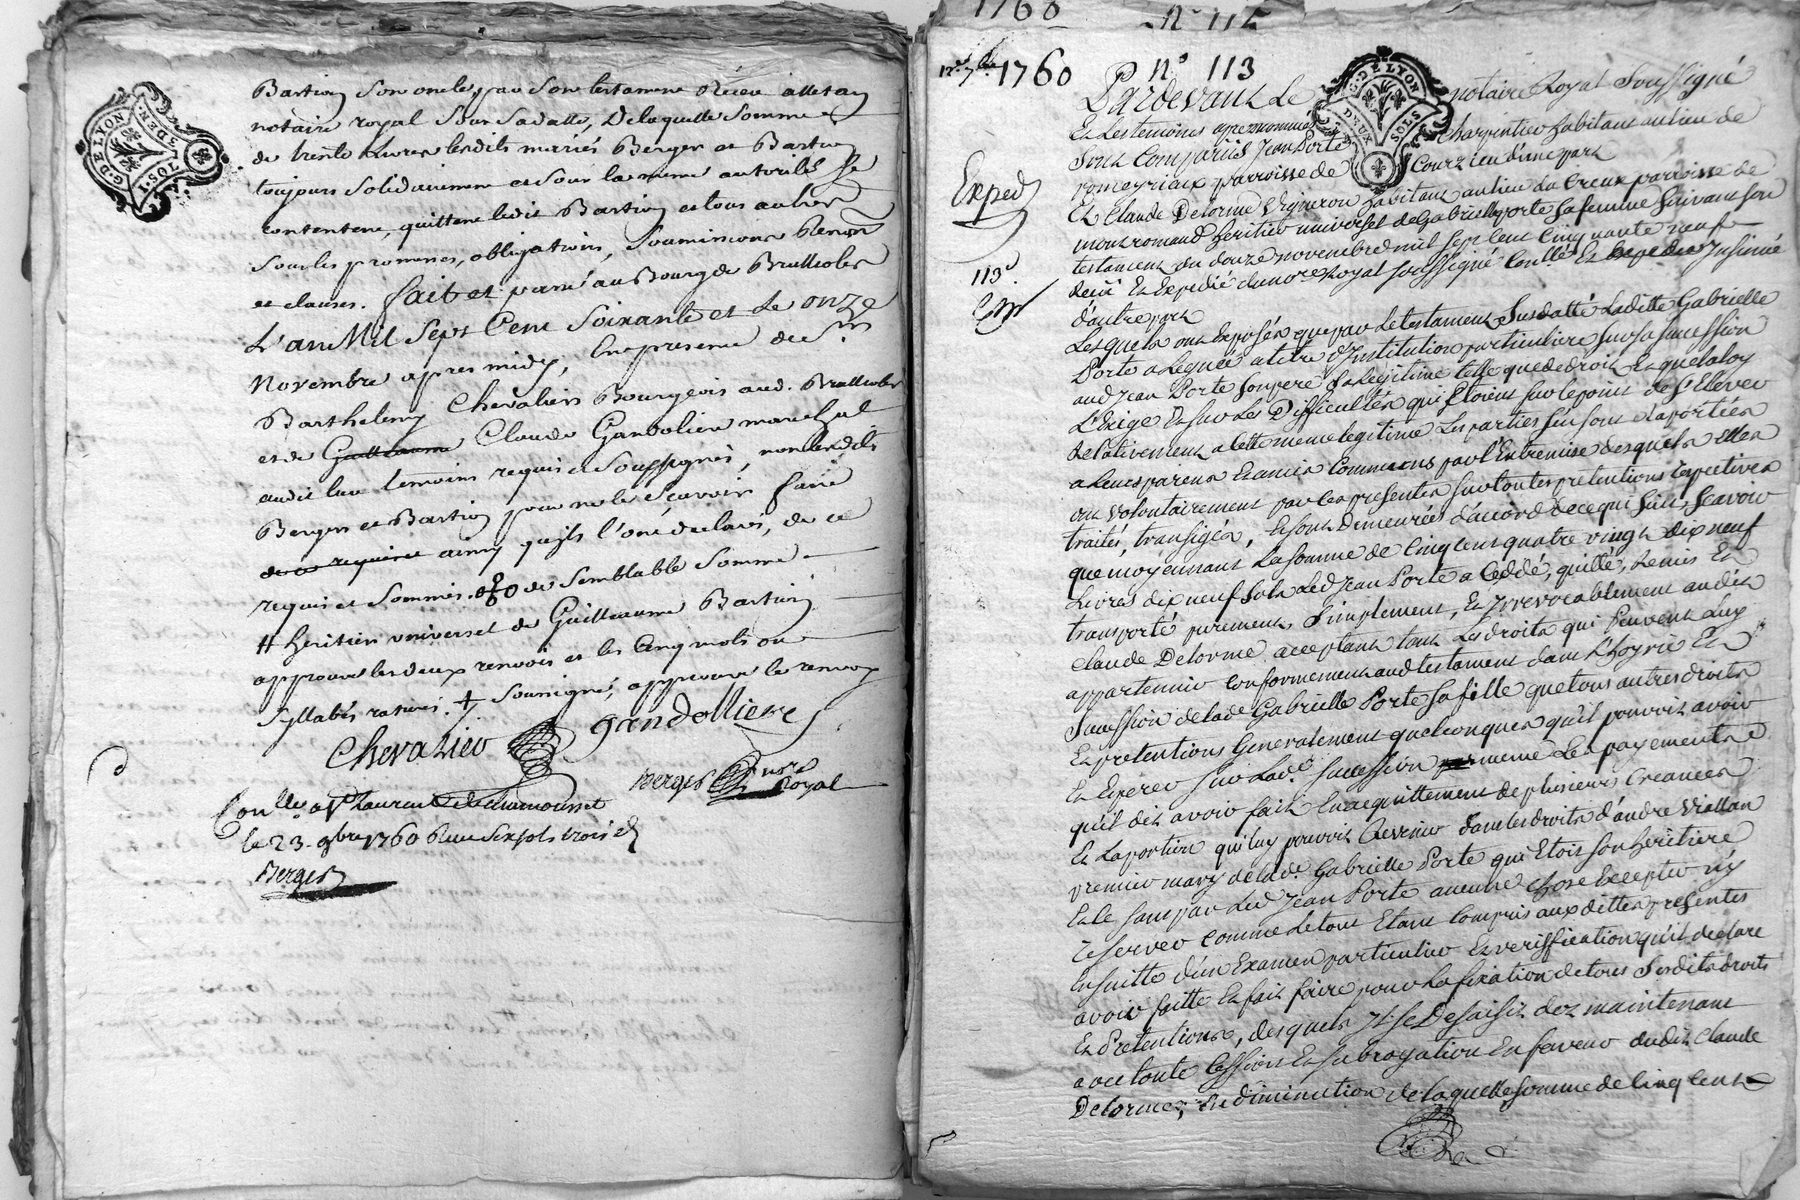 G. DE LYON
DEN.
Bastion son oncle, par son testament Reçu
notaire royal sous sa datte, De laquelle somme
de trente livres lesdits mariés Berger et Bastion
toujours solidairement et sous la meme autorité se
contentent, quittent ledit Bastion et tous autres
sous les promesses, obligations, soumissions Renon
et clauses. fait et passé au Bourg de Brullioles
L'an Mil Sept Cent Soixante et Le onze
Novembre apres midy, En presence de Sr
Barthelemy Chevalier Bourgeois aud. Brullioles
et de Guilleaume Claude Gandoliere marechal
audit lieu temoins requis et soussignés, non lesdits
Berger et Bastion pour ne le scavoir faire
de ce requis ainsy qu'ils l'ont declaré, de ce
requis et sommés. de semblable somme
# heritier universel de Guilleaume Bastion
approuvé les deux renvois et les cinq mots ou
syllabes raturés. + soussigné, approuvé le renvoy
Chevalier gandolliere
Berger nre Royal
Conllé a St Laurent de chamousset
le 23. 9bre 1760 Reçu six sols trois d
Berger
1760 N° 114
12e 7bre 1760 N° 113
G. DE LYON
DEUX SOLS
Pardevant Le notaire Royal Soussigné
Et Les temoins apres nommés
Sont comparus Jean Porte Charpentier habitant au lieu de
pomeyrieux parroisse de Courzieu d'une part
Exped
Et Claude Delorme Vigneron habitant au lieu du Creux parroisse de
montromand heritier universel de Gabrielle porte sa femme suivant son
testament du douze novembre mil sept cent cinquante neuf
113
Reçu Et Expedié du nore Royal soussigné Conllé Et Insinué
d'autre part
Lesquels ont Exposés que par Le testament Susdatté Laditte Gabrielle
Porte a Legué a titre d'Institution particuliere sur sa succession
aud Jean Porte son pere sa Legitime telle que de droit Et que la loy
L'Exige Et sur Les Difficultés qui Etoient sur le point de s'Elever
Relativement a Cette meme legitime Les parties s'en sont raportées
a Leurs parens Et amis Communs par l'Entremise desquels elles
ont volontairement par Ces presentes sur toutes pretentions respectives
traités, transigés, Et sont demeurées d'accord de ce qui suit, Scavoir
que moyennant La somme de Cinq cent quatre vingt dix neuf
Livres dix neuf sols Led Jean Porte a Ceddé, quitté, Remis Et
transporté purement, Simplement, Et Irrevocablement audit
Claude Delorme acceptant tous Les droits qui Peuvent Luy
appartenir Conformement aud testament dans L'hoyrie Et
Succession de lade Gabrielle Porte sa fille que tous autres droits
Et pretentions Generalement quelconques qu'il pouvoit avoir
Et Exercer sur Lade succession meme Les payements
qu'il dit avoir fait En acquittement de plusieurs Creances
Et La portion qui luy pouvoit Revenir dans les droits d'andré Viallon
premier mary de lade Gabrielle Porte qui Etoit son heritiere
Et Ce sans par Led Jean Porte aucune chose Excepter n'y
Reserver Comme Le tout Etant Compris aux dittes presentes
Ensuitte d'un Examen particulier Et veriffication qu'il declare
avoir faitte Et fait faire pour La fixation de tous Susdits droits
Et Pretentions, desquels Il Se Desaisit dez maintenant
avec toute Cession Et subrogation En faveur dudit Claude
Delorme, En diminution de laquelle somme de Cinq cent